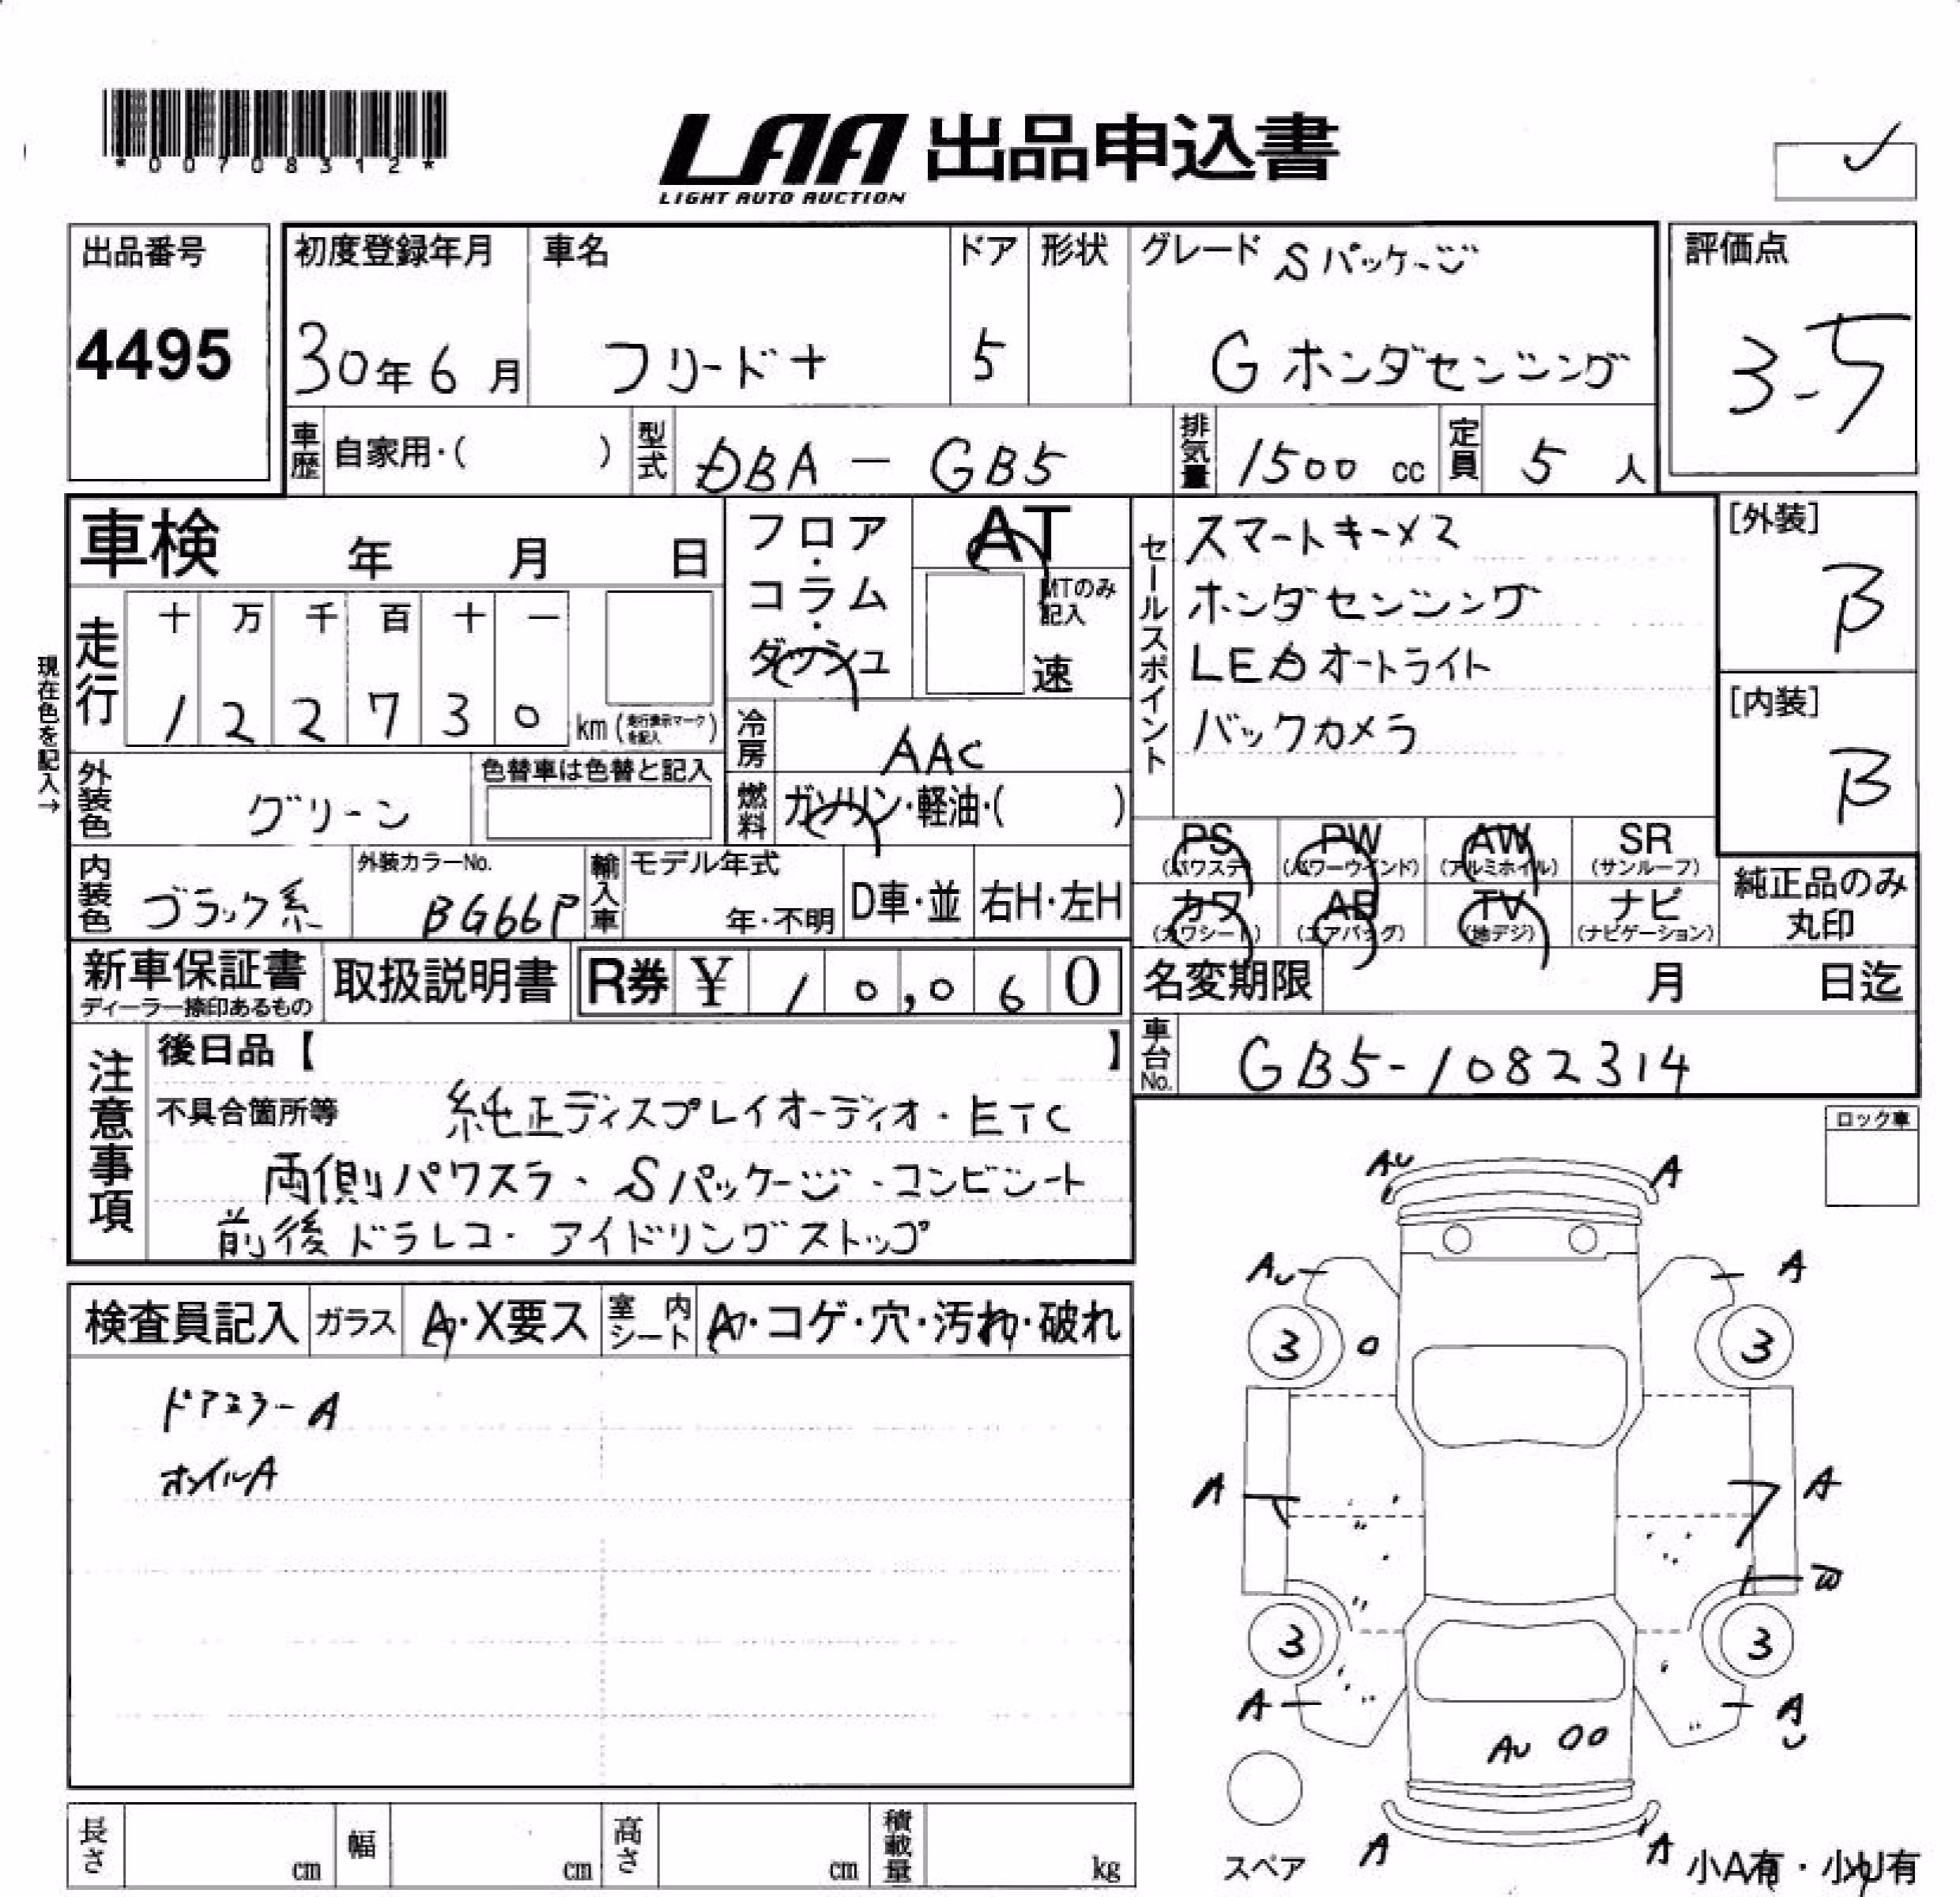 *00708312*
LAA 出品申込書
LIGHT AUTO AUCTION
出品番号
4495
初度登録年月
30年6月
車名
フリード+
ドア
5
形状
グレード Sパッケージ
G ホンダセンシング
評価点
3.5
車歴 自家用・( )
型式 DBA - GB5
排気量 1500 cc
定員 5 人
車検 年 月 日
走行 十 万 千 百 十 一
1 2 2 7 3 0 km (走行表示マークを記入)
現在色を記入→
フロア・コラム・ダッシュ
AT
MTのみ記入
速
冷房 AAC
燃料 ガソリン・軽油・( )
セールスポイント
スマートキー×2
ホンダセンシング
LEDオートライト
バックカメラ
[外装]
B
[内装]
B
外装色 グリーン
色替車は色替と記入
内装色 ブラック系
外装カラーNo.
BG66P
輸入車 モデル年式
年・不明
D車・並
右H・左H
PS (パワステ) PW (パワーウインド) AW (アルミホイル) SR (サンルーフ)
カワ (カワシート) AB (エアバッグ) TV (地デジ) ナビ (ナビゲーション)
純正品のみ丸印
新車保証書
ディーラー捺印あるもの
取扱説明書
R券 ¥ 10,060
名変期限 月 日迄
車台No. GB5-1082314
注意事項
後日品【 】
不具合箇所等 純正ディスプレイオーディオ・ETC
両側パワスラ・Sパッケージ・コンビシート
前後ドラレコ・アイドリングストップ
ロック車
検査員記入 ガラス A・X要ス 室内シート A・コゲ・穴・汚れ・破れ
ドアミラーA
ホイルA
AU A
AU A
3 3
A A
W
3 3
A AU
AU
スペア
A A
小A有・小U有
長さ cm 幅 cm 高さ cm 積載量 kg